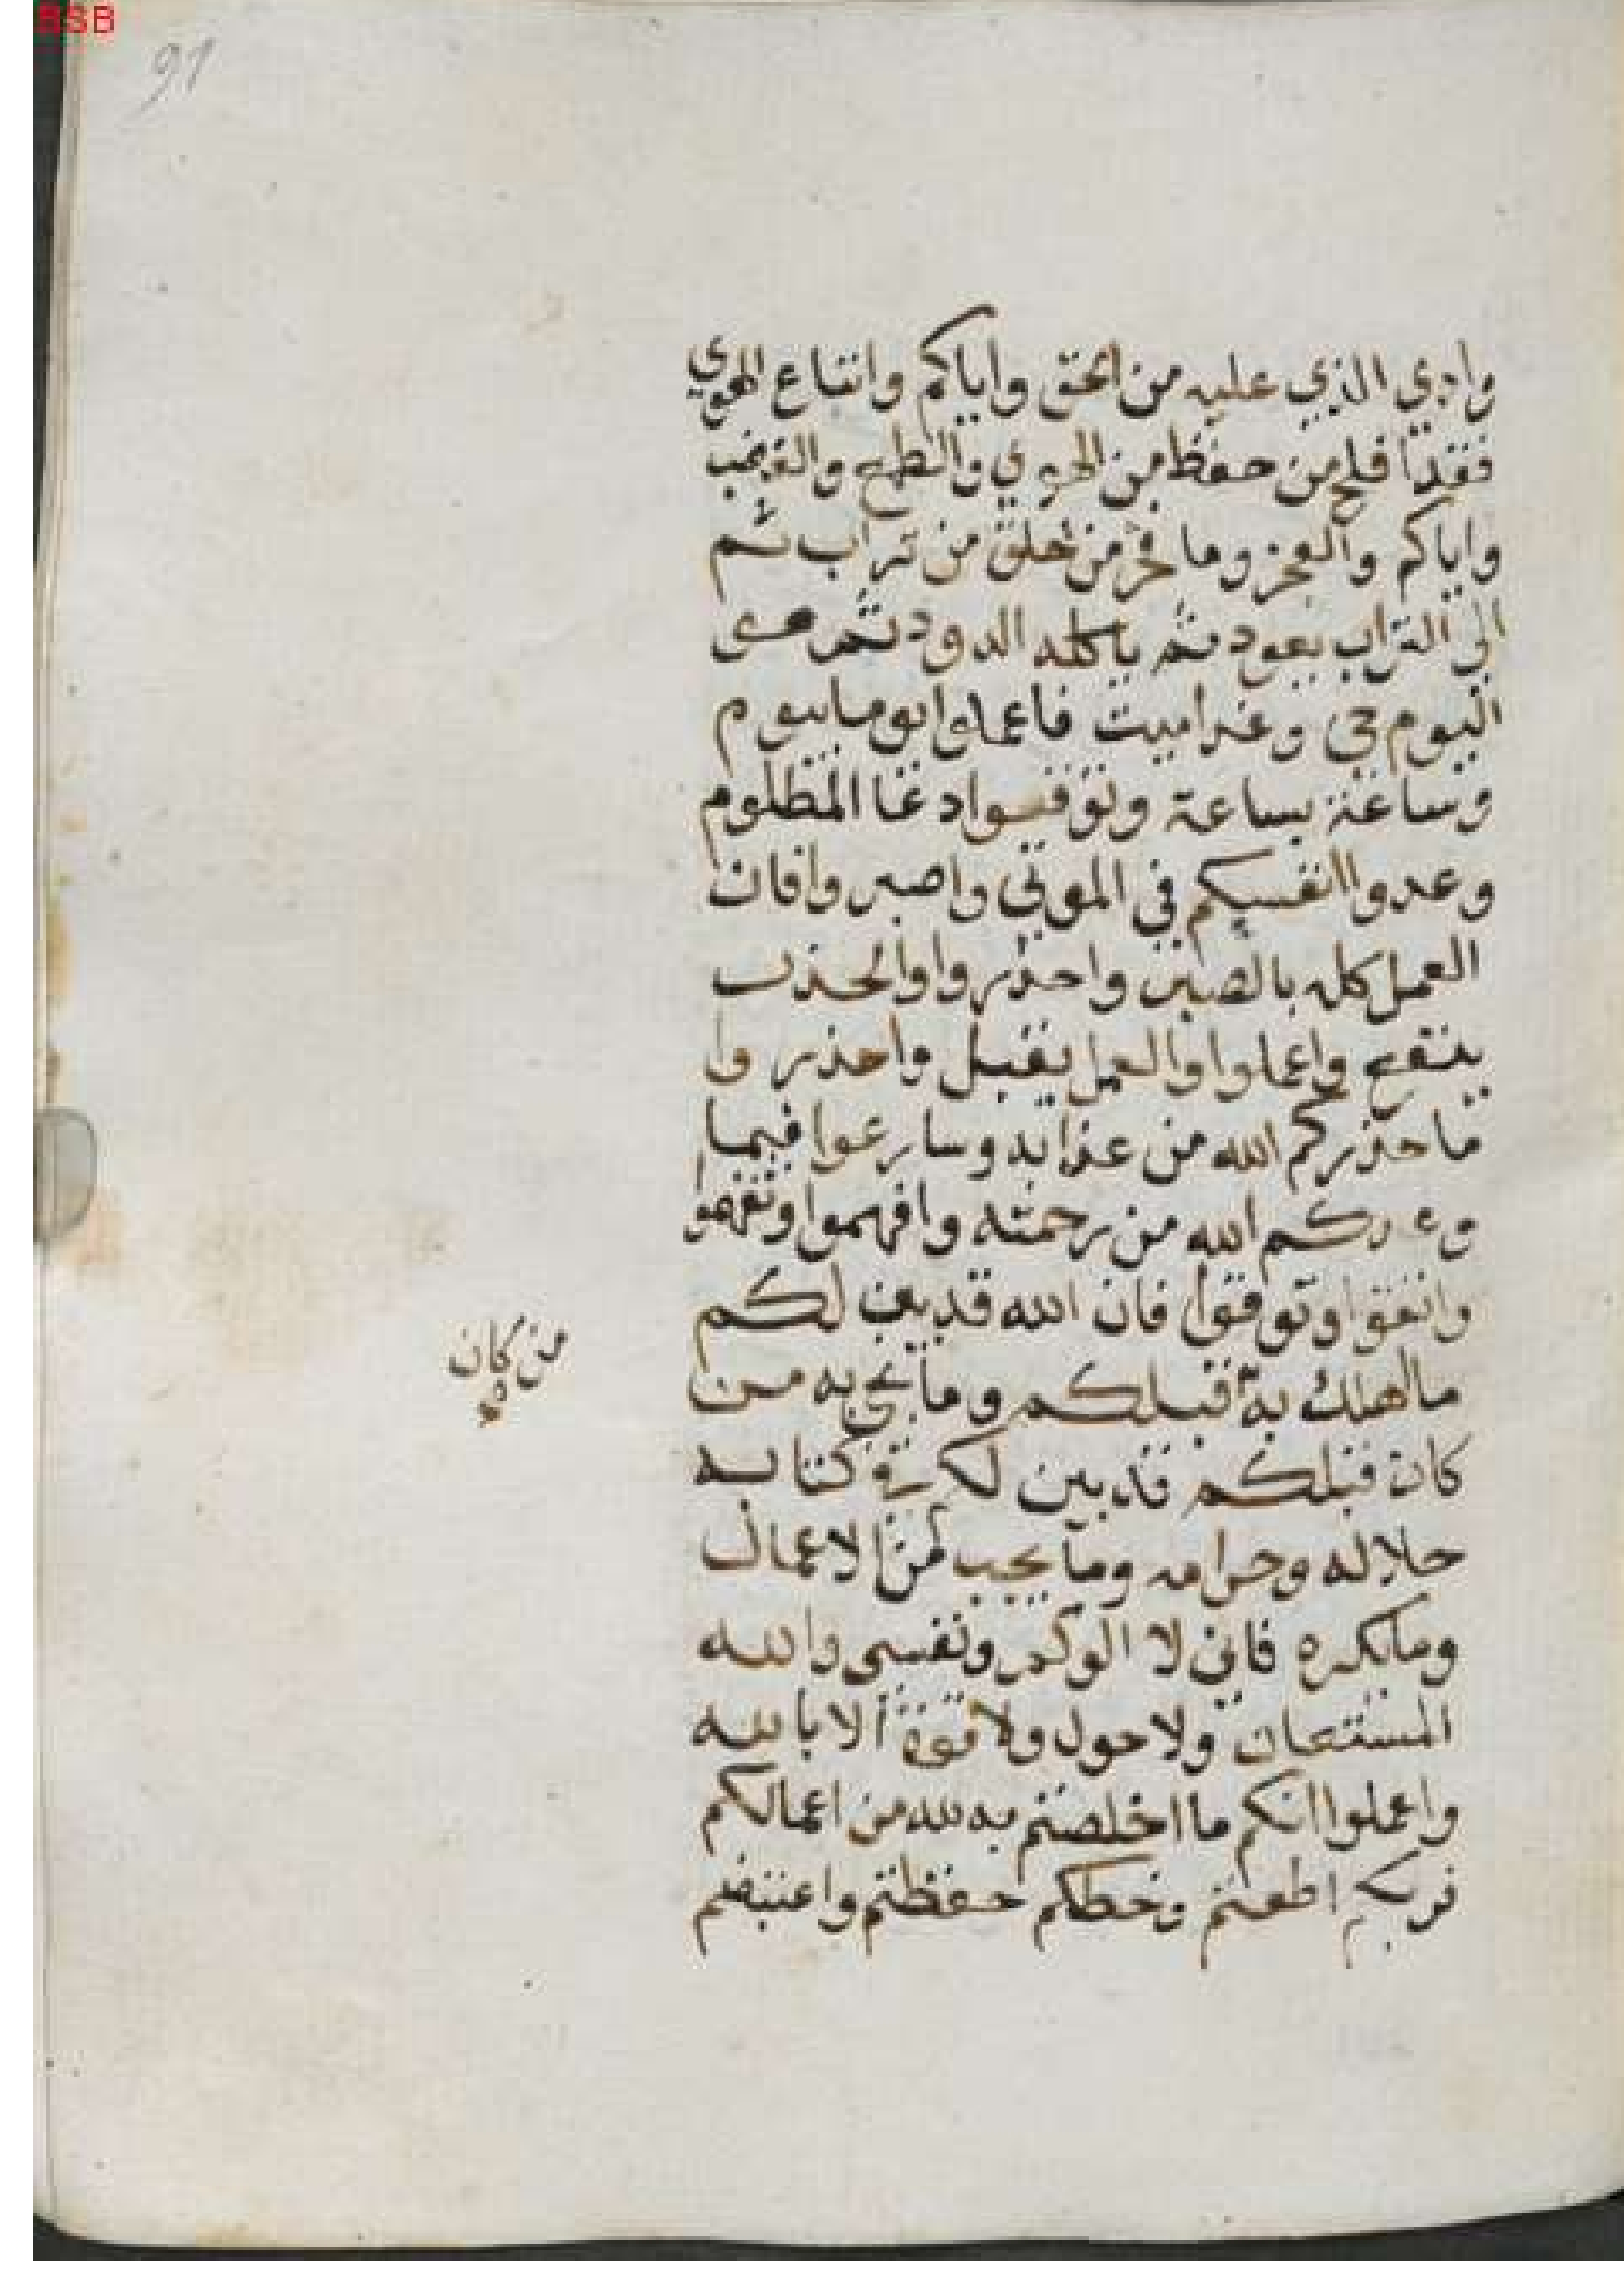 BSB
91
وادي الذي عليه من الحق واياكم واتباع الهوي
فقد افلح من حفظ من الهوي والطمع والغضب
واياكم والفخر وما فخر من خلق من تراب ثم
الي التراب يعود ثم ياكله الدود ثم هو
اليوم حي وغدا ميت فاعملوا يوما بيوم
وساعة بساعة وتوقوا دعا المظلوم
وعدوا انفسكم في الموتي واصبروا فان
العمل كله بالصبر واحذروا والحذر
ينفع واعملوا والعمل يقبل واحذروا
ما حذركم الله من عذابه وسارعوا فيما
وعدكم الله من رحمته وافهموا وتفهموا
واتقوا وتوقوا فان الله قد بين لكم
ما اهلك به قبلكم وما نجي به من
من كان
كان قبلكم قد بين لكم في كتابه
حلاله وحرامه وما يحب من الاعمال
وما يكره فاني لا الوكم ونفسي والله
المستعان ولا حول ولا قوة الا بالله
واعملوا انكم ما اخلصتم به لله من اعمالكم
فربكم اطعتم وحظكم حفظتم واغتبطتم